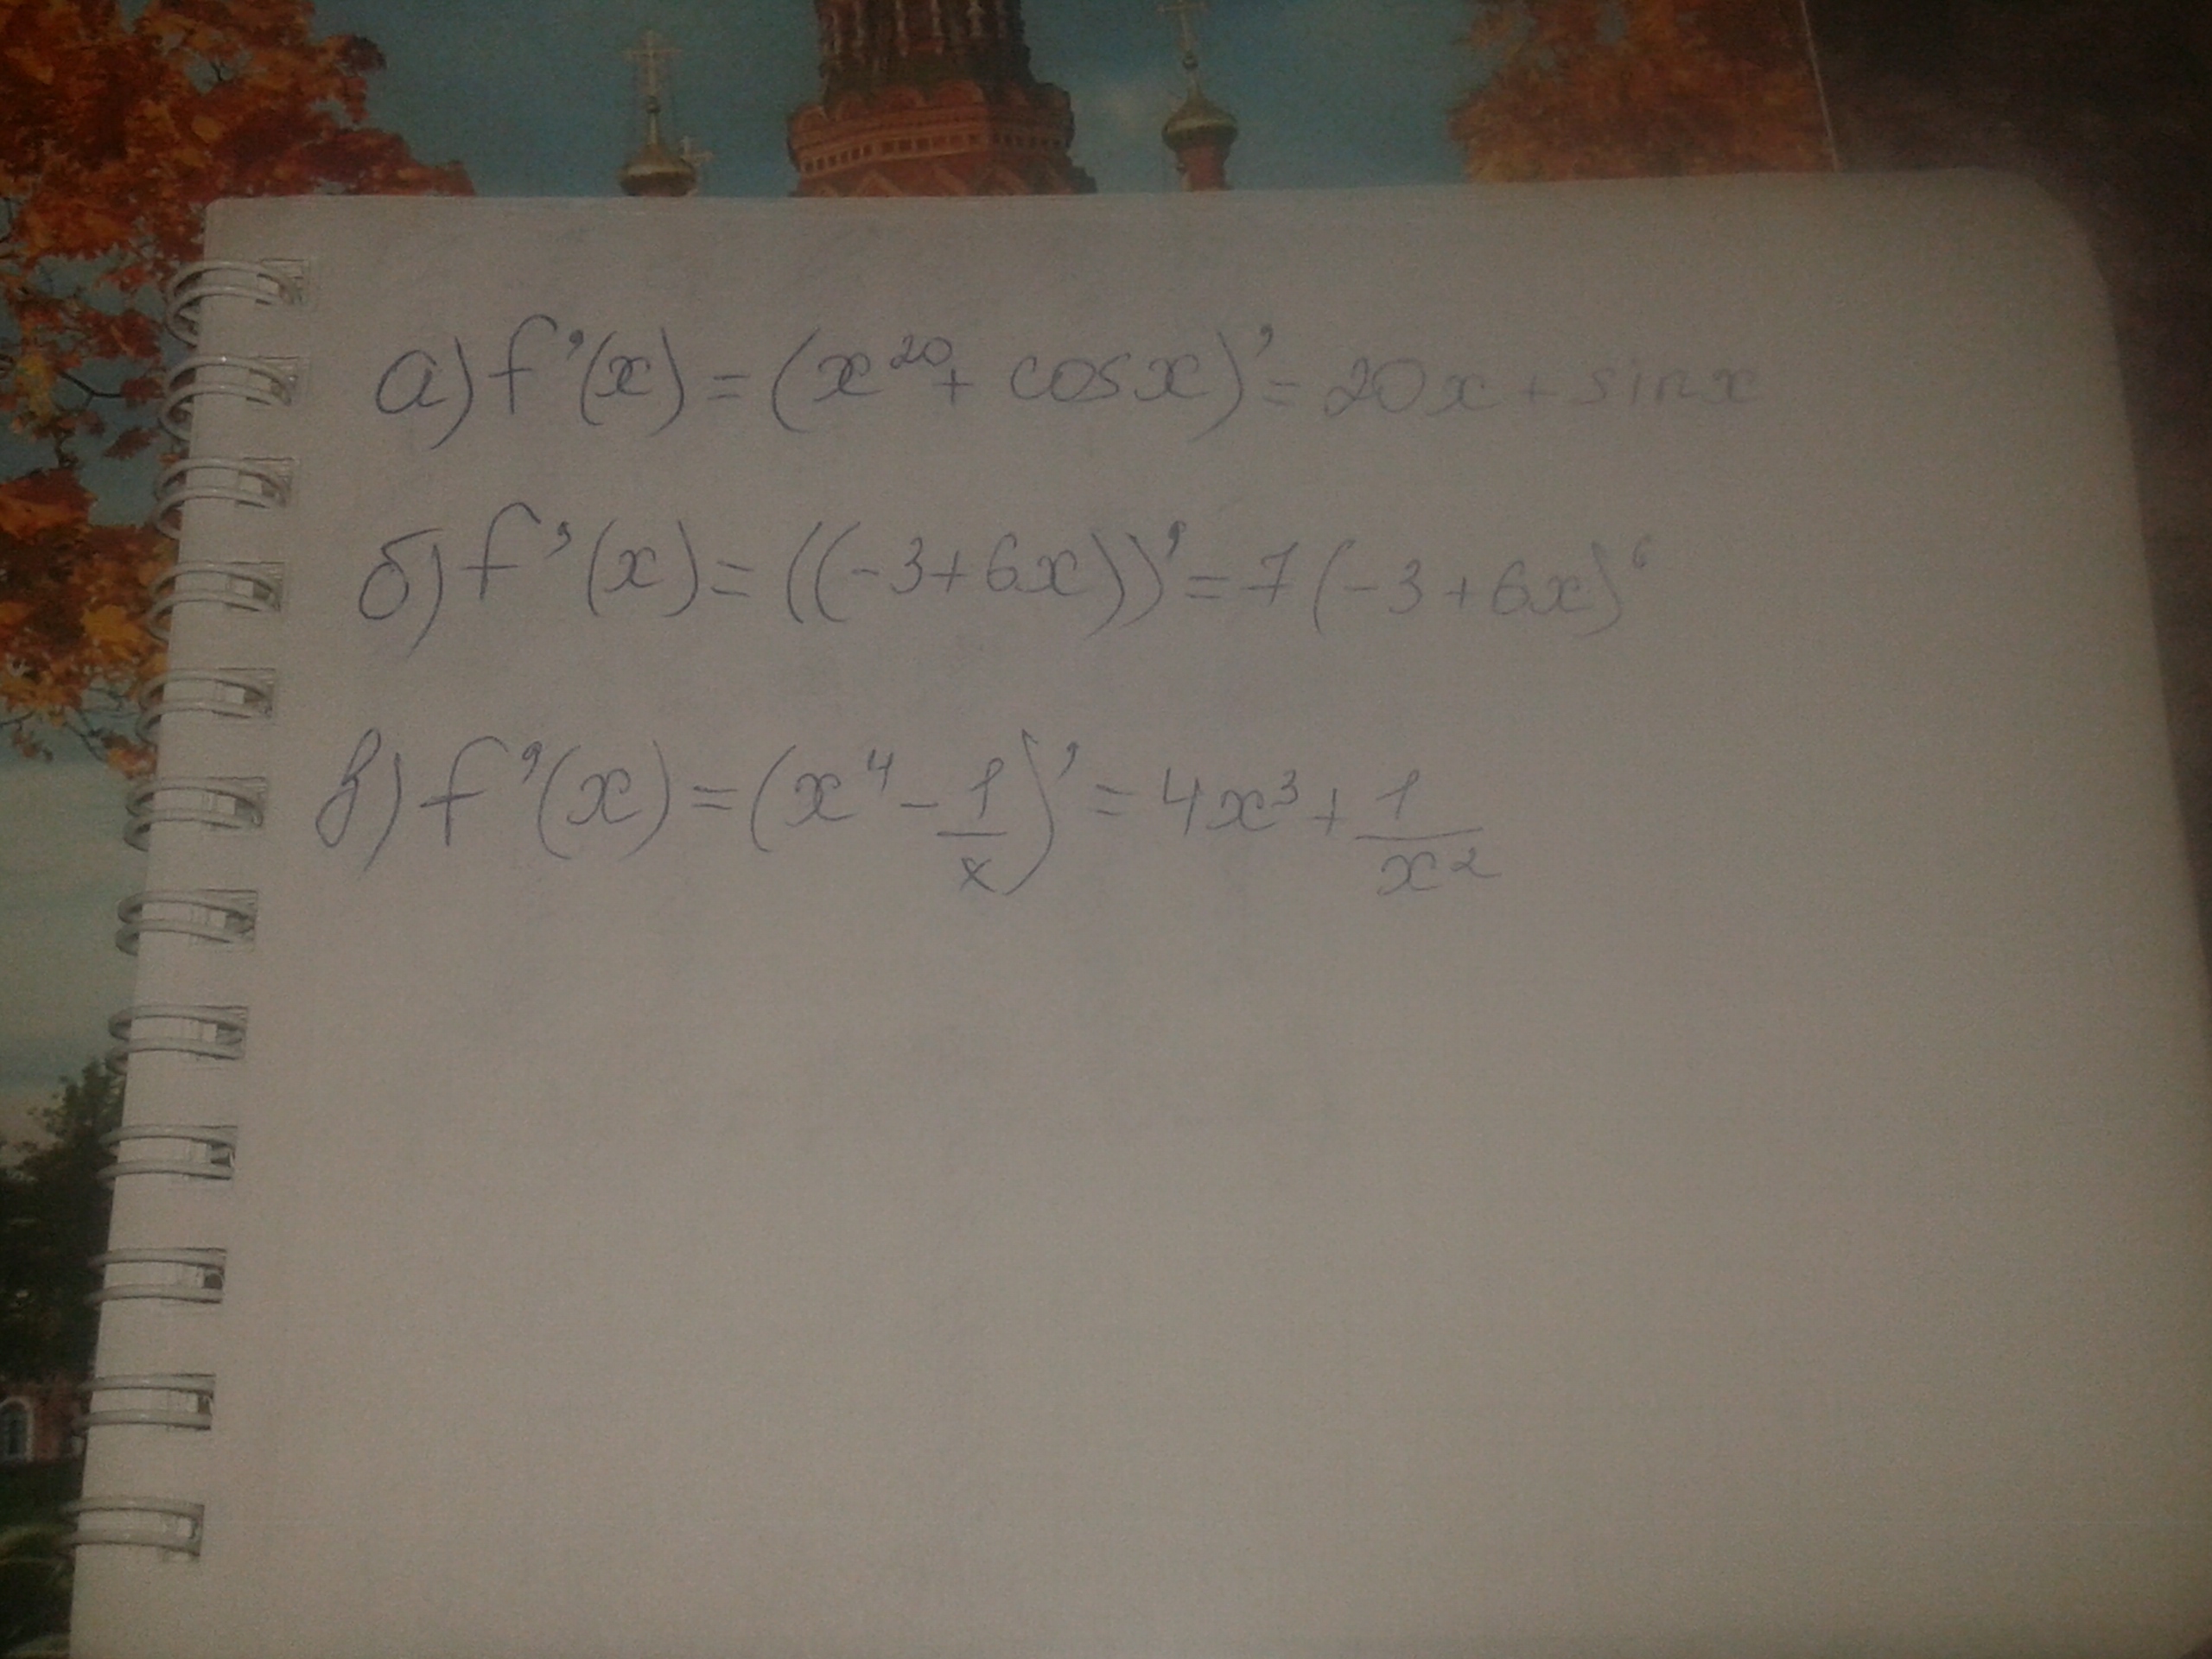 а) f'(x) = (x²⁰ + cosx)' = 20x + sinx
б) f'(x) = ((-3+6x))' = 7(-3+6x)⁶
в) f'(x) = (x⁴ - 1/x)' = 4x³ + 1/x²